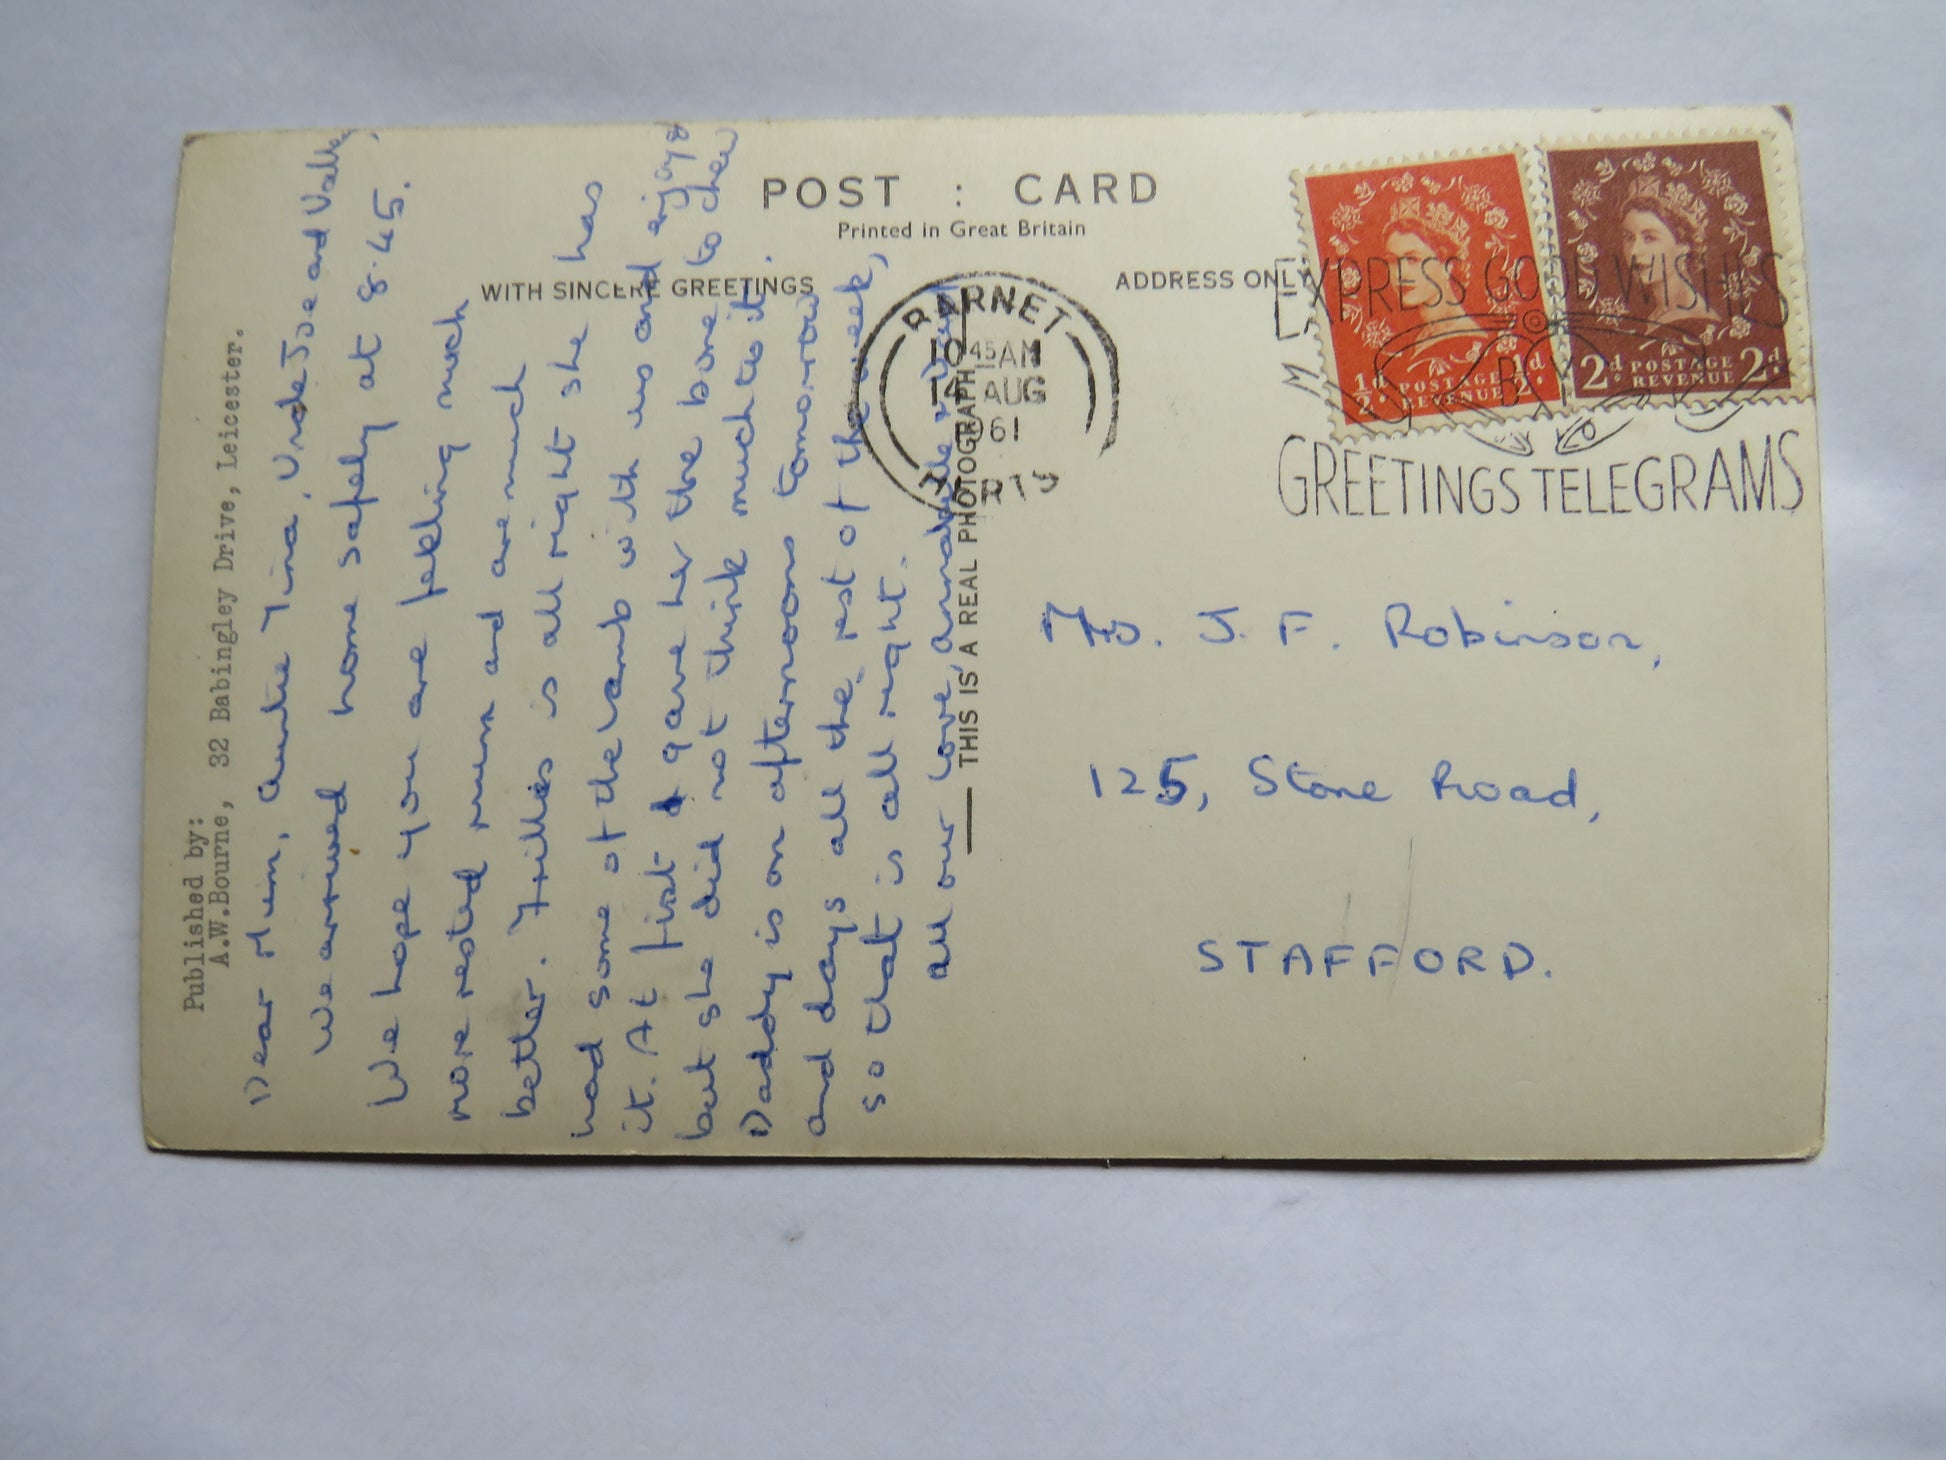 POST : CARD
Printed in Great Britain
WITH SINCERE GREETINGS
ADDRESS ONLY
Published by:
A.W.Bourne, 32 Babingley Drive, Leicester.
Dear Mum, Auntie Tina, Uncle Joe and Vally,
We arrived home safely at 8.45.
We hope you are feeling much
more rested mum and are much
better. Trillis is all right she has
had some of the lamb with us and enjoys
it. At first I gave her the bone to chew
but she did not think much to it.
Daddy is on afternoons tomorrow
and days all the rest of the week,
so that is all right.
All our love,
THIS IS A REAL PHOTOGRAPH
BARNET
45AM
AUG
1961
EXPRESS GOOD WISHES
BY
GREETINGS TELEGRAMS
½d POSTAGE ½d
REVENUE
2d POSTAGE 2d
REVENUE
J. F. Robinson,
125, Stone Road,
STAFFORD.